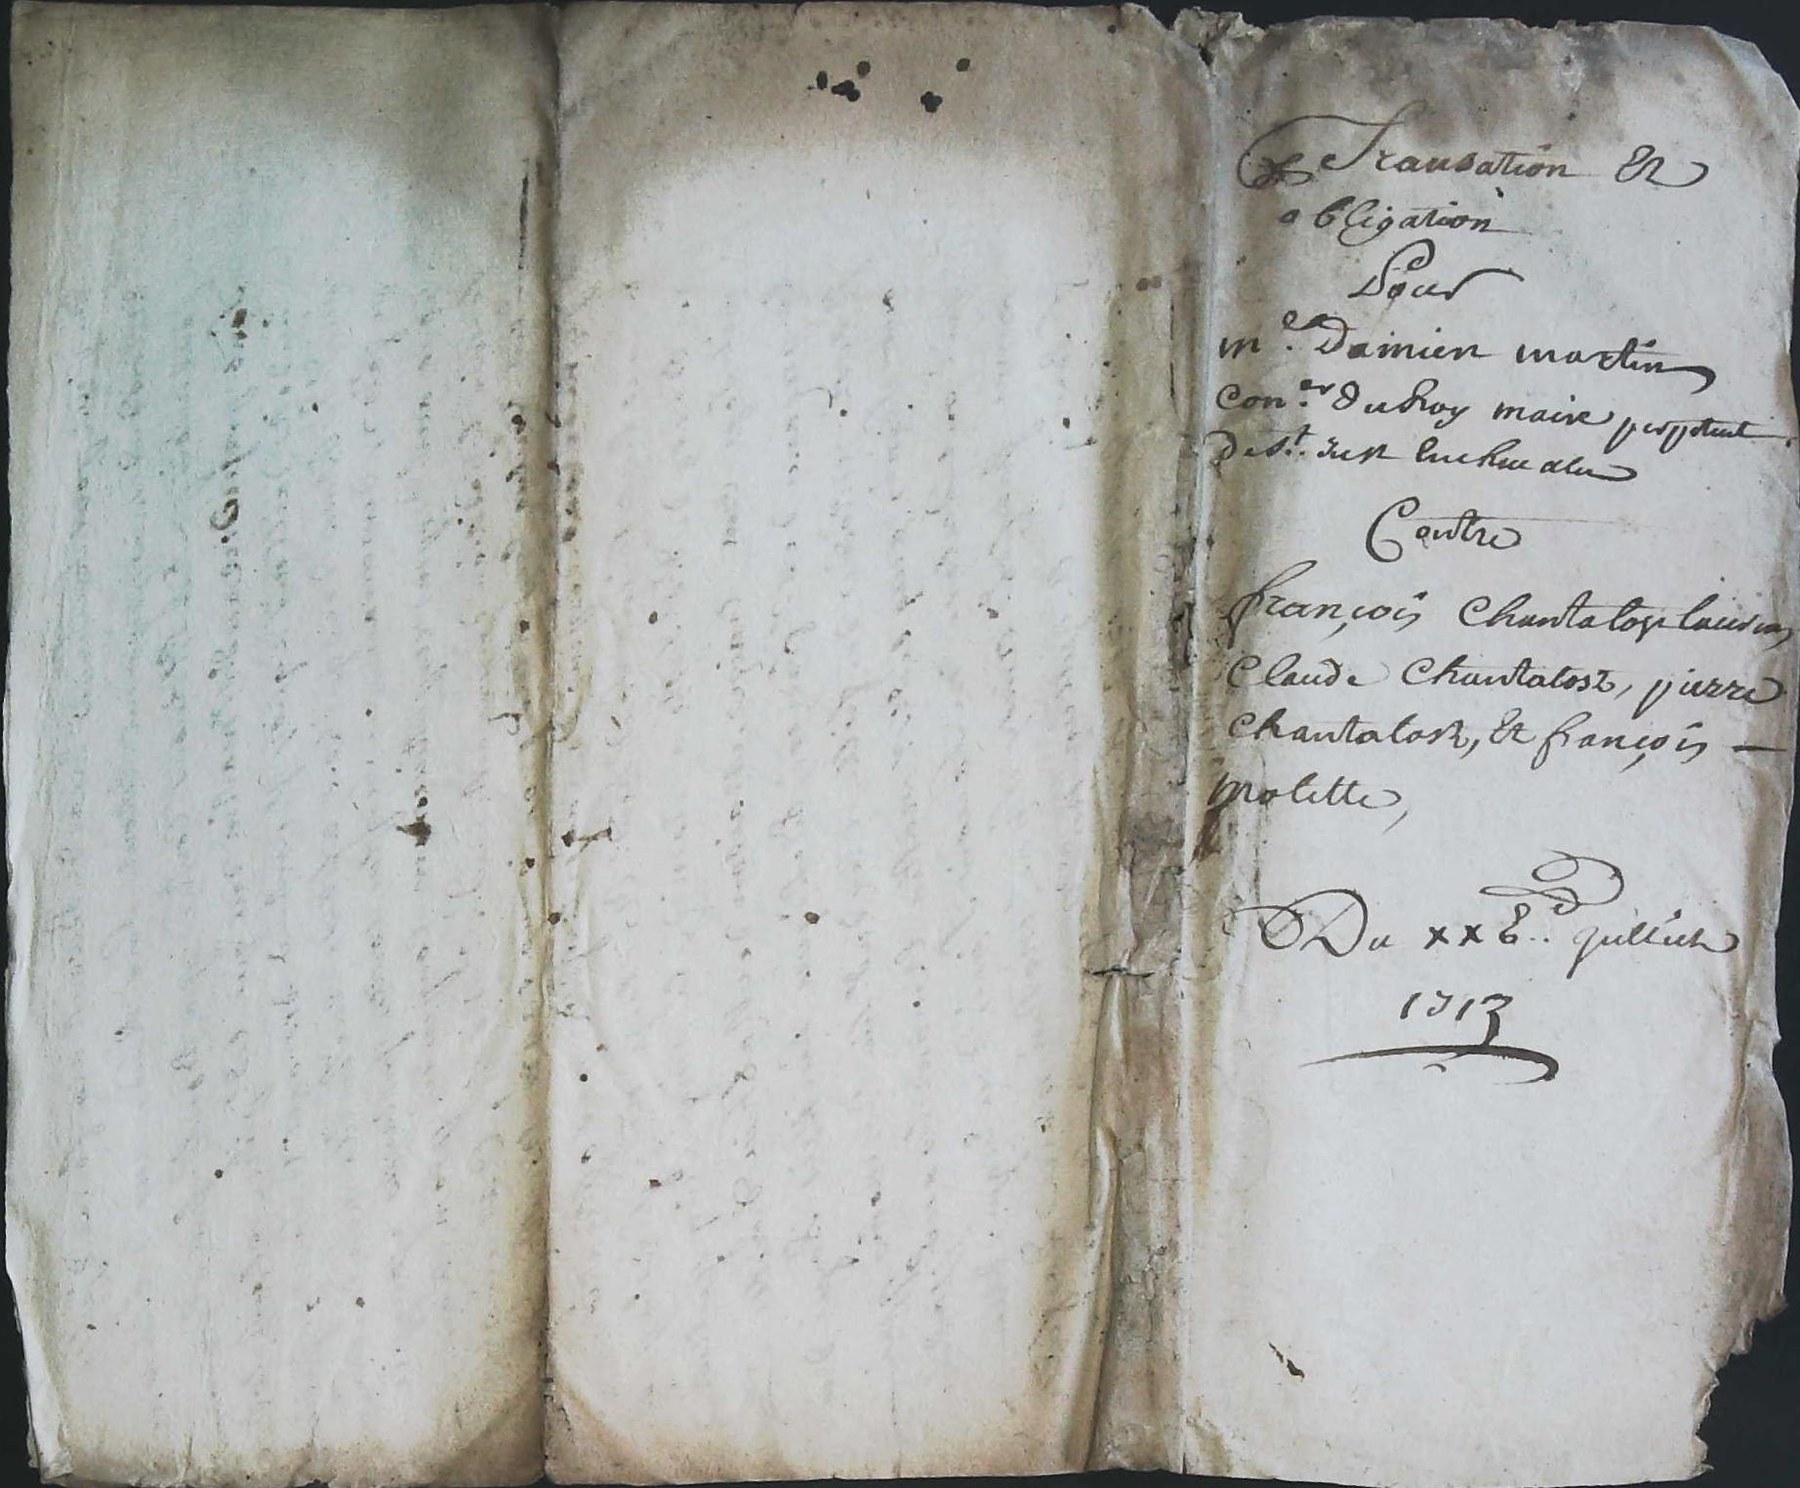 Transation Et
obligation
Pour
me. Damien martin
coner. du Roy maire perpetuel
de st. Just
Contre
françois Chantalost
Claude Chantalost, pierre
Chantalost, Et françois —
molette,
Du xxe.. juillet
1713